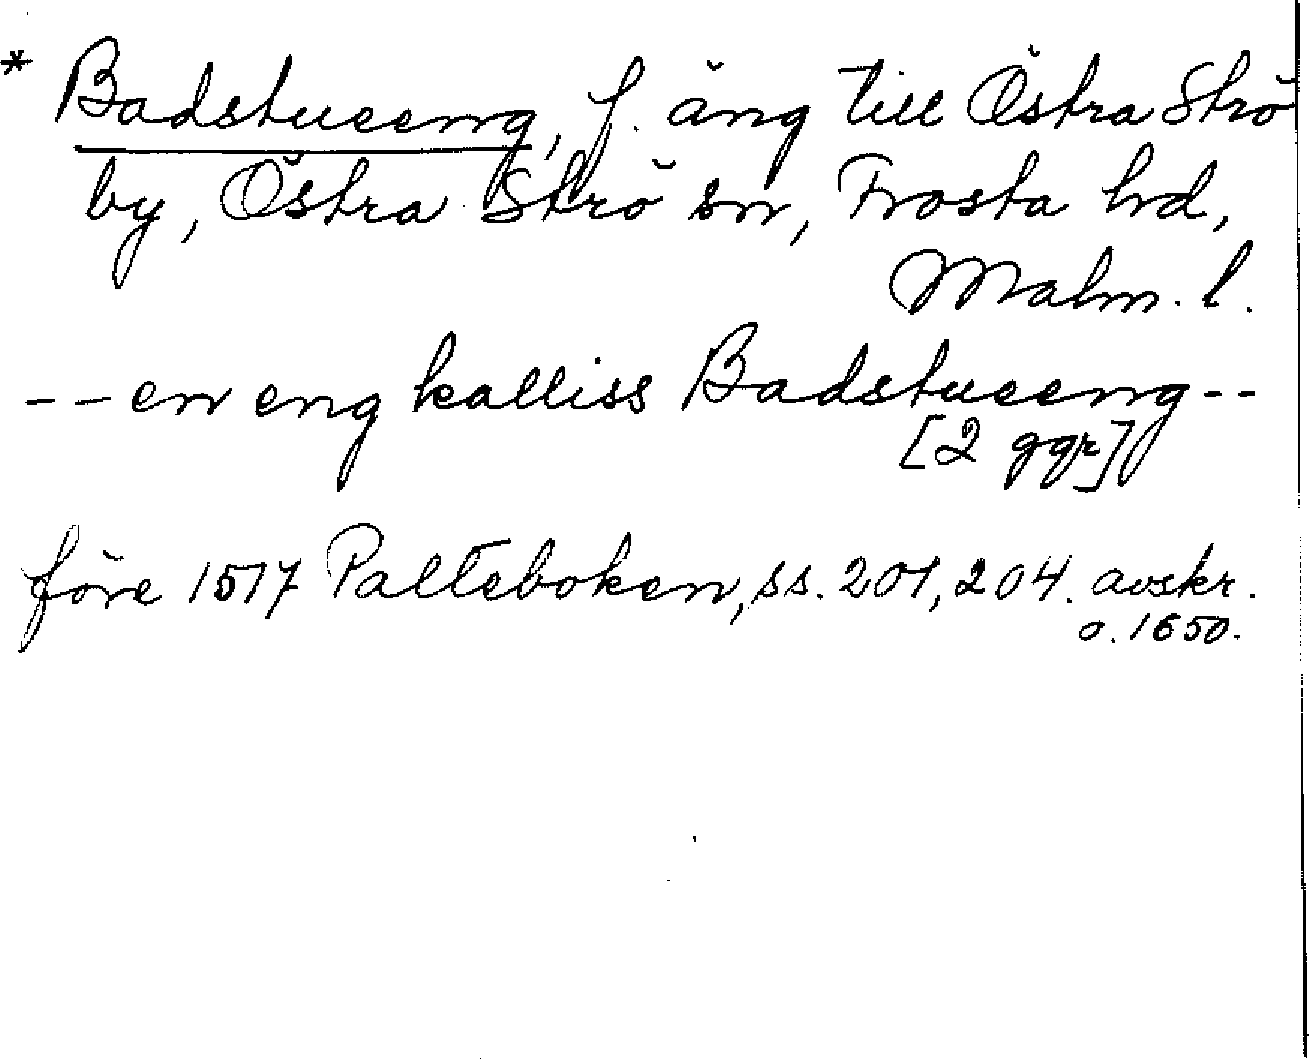 * Badstueeng, f. äng till Östra Strö
by, Östra Strö sn, Frosta hd,
Malm. l.
-- en eng kalliss Badstueeng --
[2 ggr]
före 1517 Palteboken, ss. 201, 204. avskr.
o. 1650.